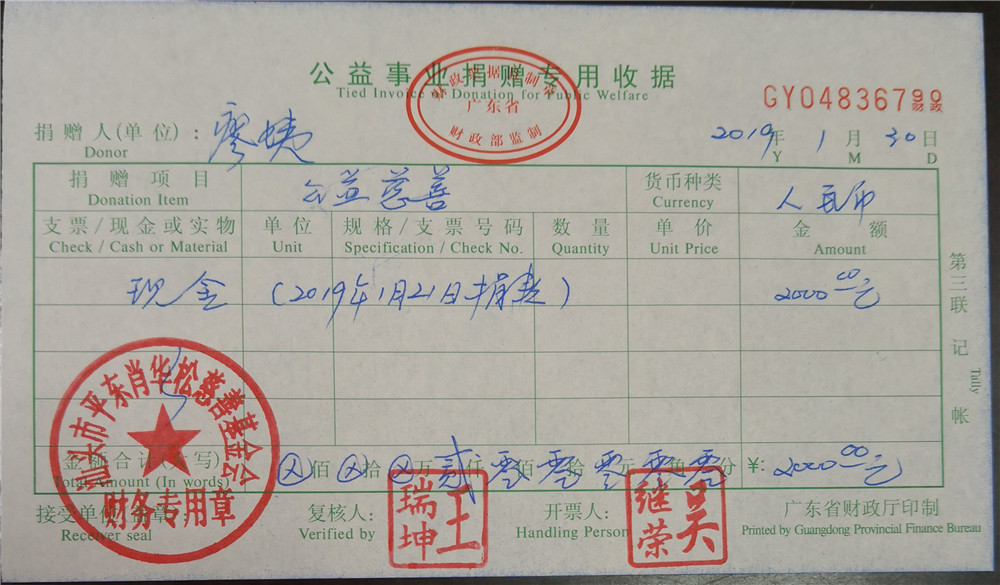 公益事业捐赠专用收据
Tied Invoice of Donation for Public Welfare
广东省
财政部监制
GY04836790
财政
捐赠人(单位): 廖
Donor
2019年 1月 30日
Y M D
捐赠项目 公益慈善 货币种类 人民币
Donation Item Currency
支票/现金或实物 单位 规格/支票号码 数量 单价 金额
Check / Cash or Material Unit Specification / Check No. Quantity Unit Price Amount
现金 (2019年1月21日捐赠) 2000.00元
第三联 记帐
Tally
汕头市平东肖华松慈善基金会
财务专用章
金额合计(大写) ⊗佰⊗拾⊗万贰仟零佰零拾零元零角零分 ¥: 2000.00元
Total Amount (In words)
接受单位(盖章): 复核人: 王瑞坤 开票人: 吴继荣 广东省财政厅印制
Receiver seal Verified by Handling Person Printed by Guangdong Provincial Finance Bureau